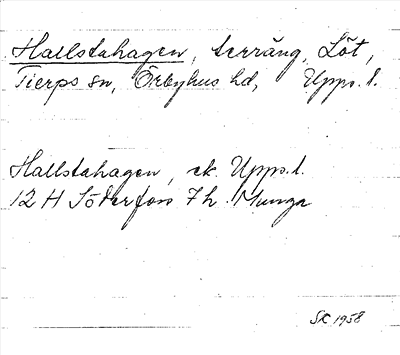 Hallstahagen, terräng, Löt,
Tierps sn, Örbyhus hd, Upps. l.
Hallstahagen, ek. Upps. l.
12 H Söderfors 7 h. Munga
SK 1958